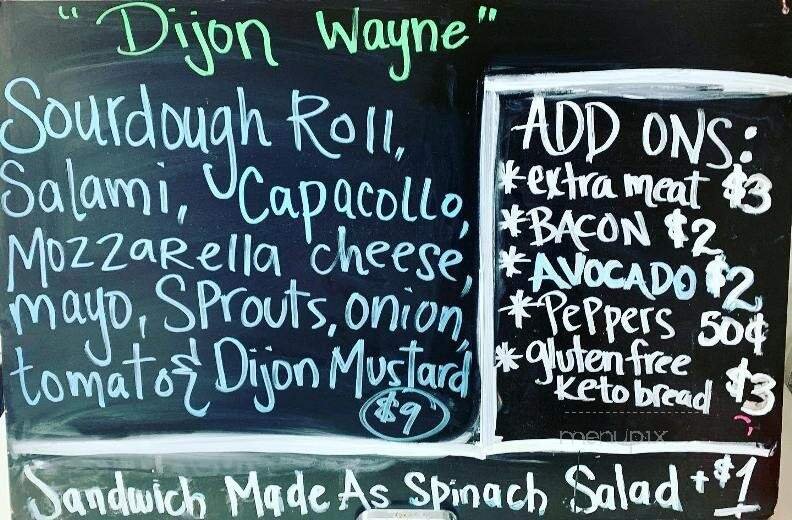 "Dijon Wayne"
Sourdough Roll,
Salami, Capacollo,
Mozzarella cheese,
mayo, Sprouts, onion,
tomato & Dijon Mustard
$9
ADD ONS:
*extra meat $3
*BACON $2
*AVOCADO $2
*Peppers 50¢
*gluten free
keto bread $3
menupix
Sandwich Made As Spinach Salad +$1